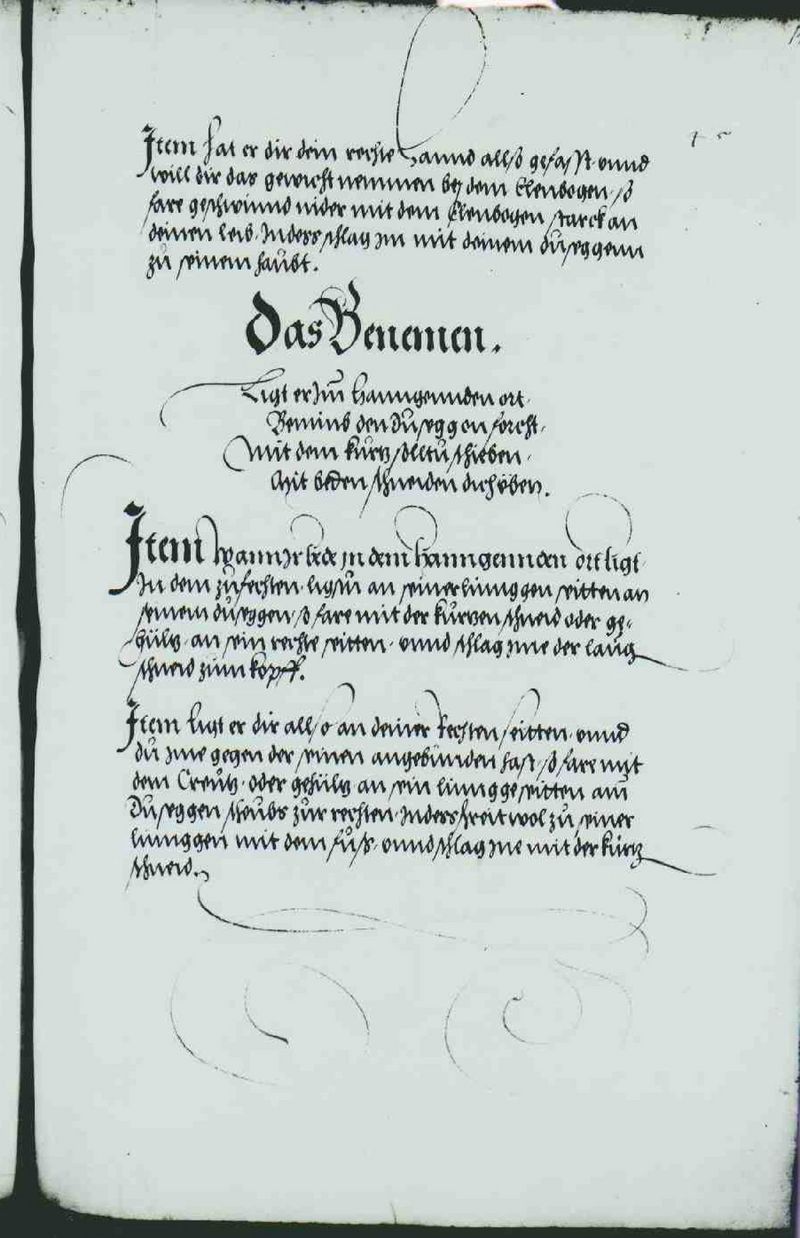 Item hat er dir dein rechte hannd allso gefasst vnnd
will dir das gewicht nemmen bej dem Elenbogen, so
fare geschwinnd nider mit dem Elenbogen starck an
deinen leib, Inndess schlag im mit deinem dusseggenn
zu seinem haubt.
Das Benemen.
Ligt er Im Hanngennden ort,
Benimb den Dusseggen forcht,
Mit dem kurtz solltu schieben,
Mit beden schneiden dich yeben.
Item Wann Ir bede in dem hanngennden ort ligt
In dem zufechten, ligstu an seiner linnggen seitten an
seinem dusseggen, so fare mit der kurtzen schneid oder ge-
hültz an sein rechte seitten, vnnd schlag ime der lanng
schneid zum kopff.
Item Ligt er dir allso an deiner Rechten seitten, vnnd
du ime gegen der seinen angebunden hast, so fare mit
dem Creutz, oder gehültz an sein linngge seitten am
Dusseggen scheubs zur rechten, Inndes schreit wol zu seiner
linnggen mit dem fuß, vnnd schlag ime mit der kurtz
schneid.